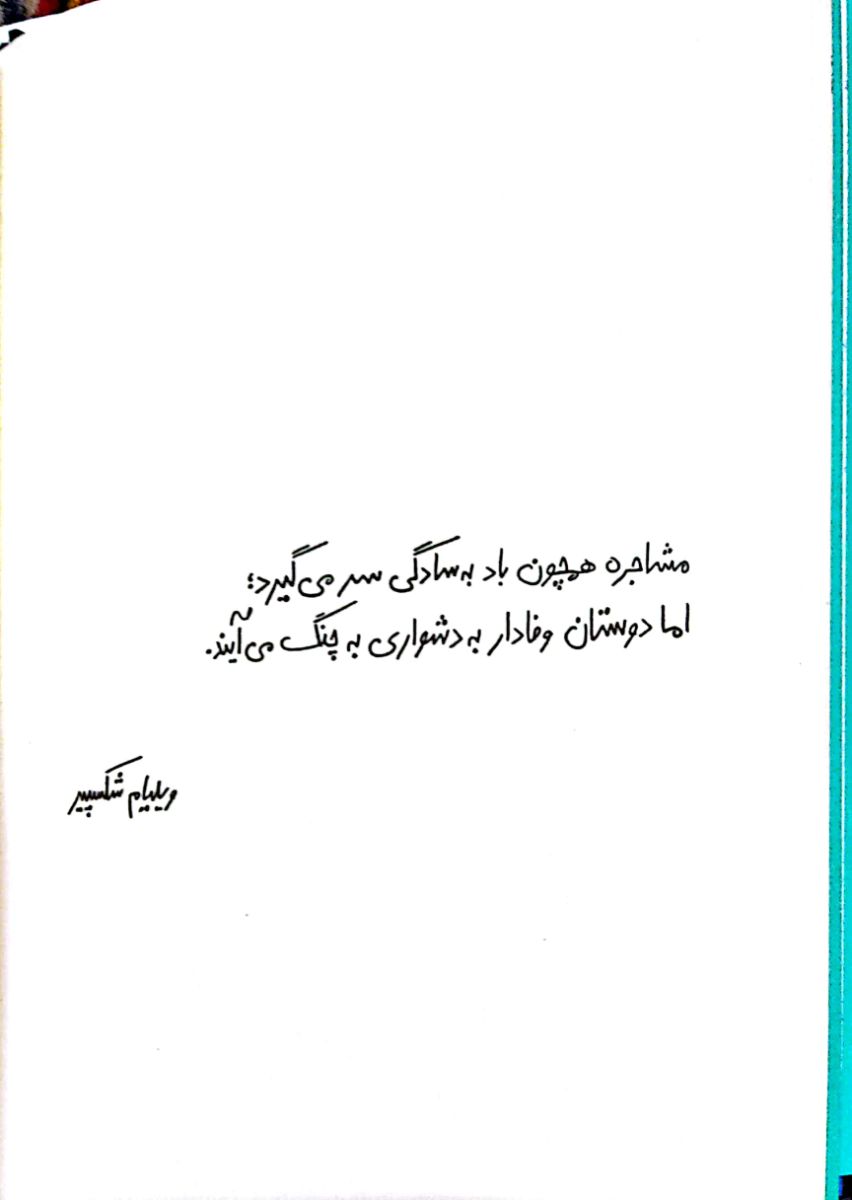 مشاجره همچون باد به‌سادگی سر می‌گیرد؛
اما دوستان وفادار به دشواری به چنگ می‌آیند.
ویلیام شکسپیر